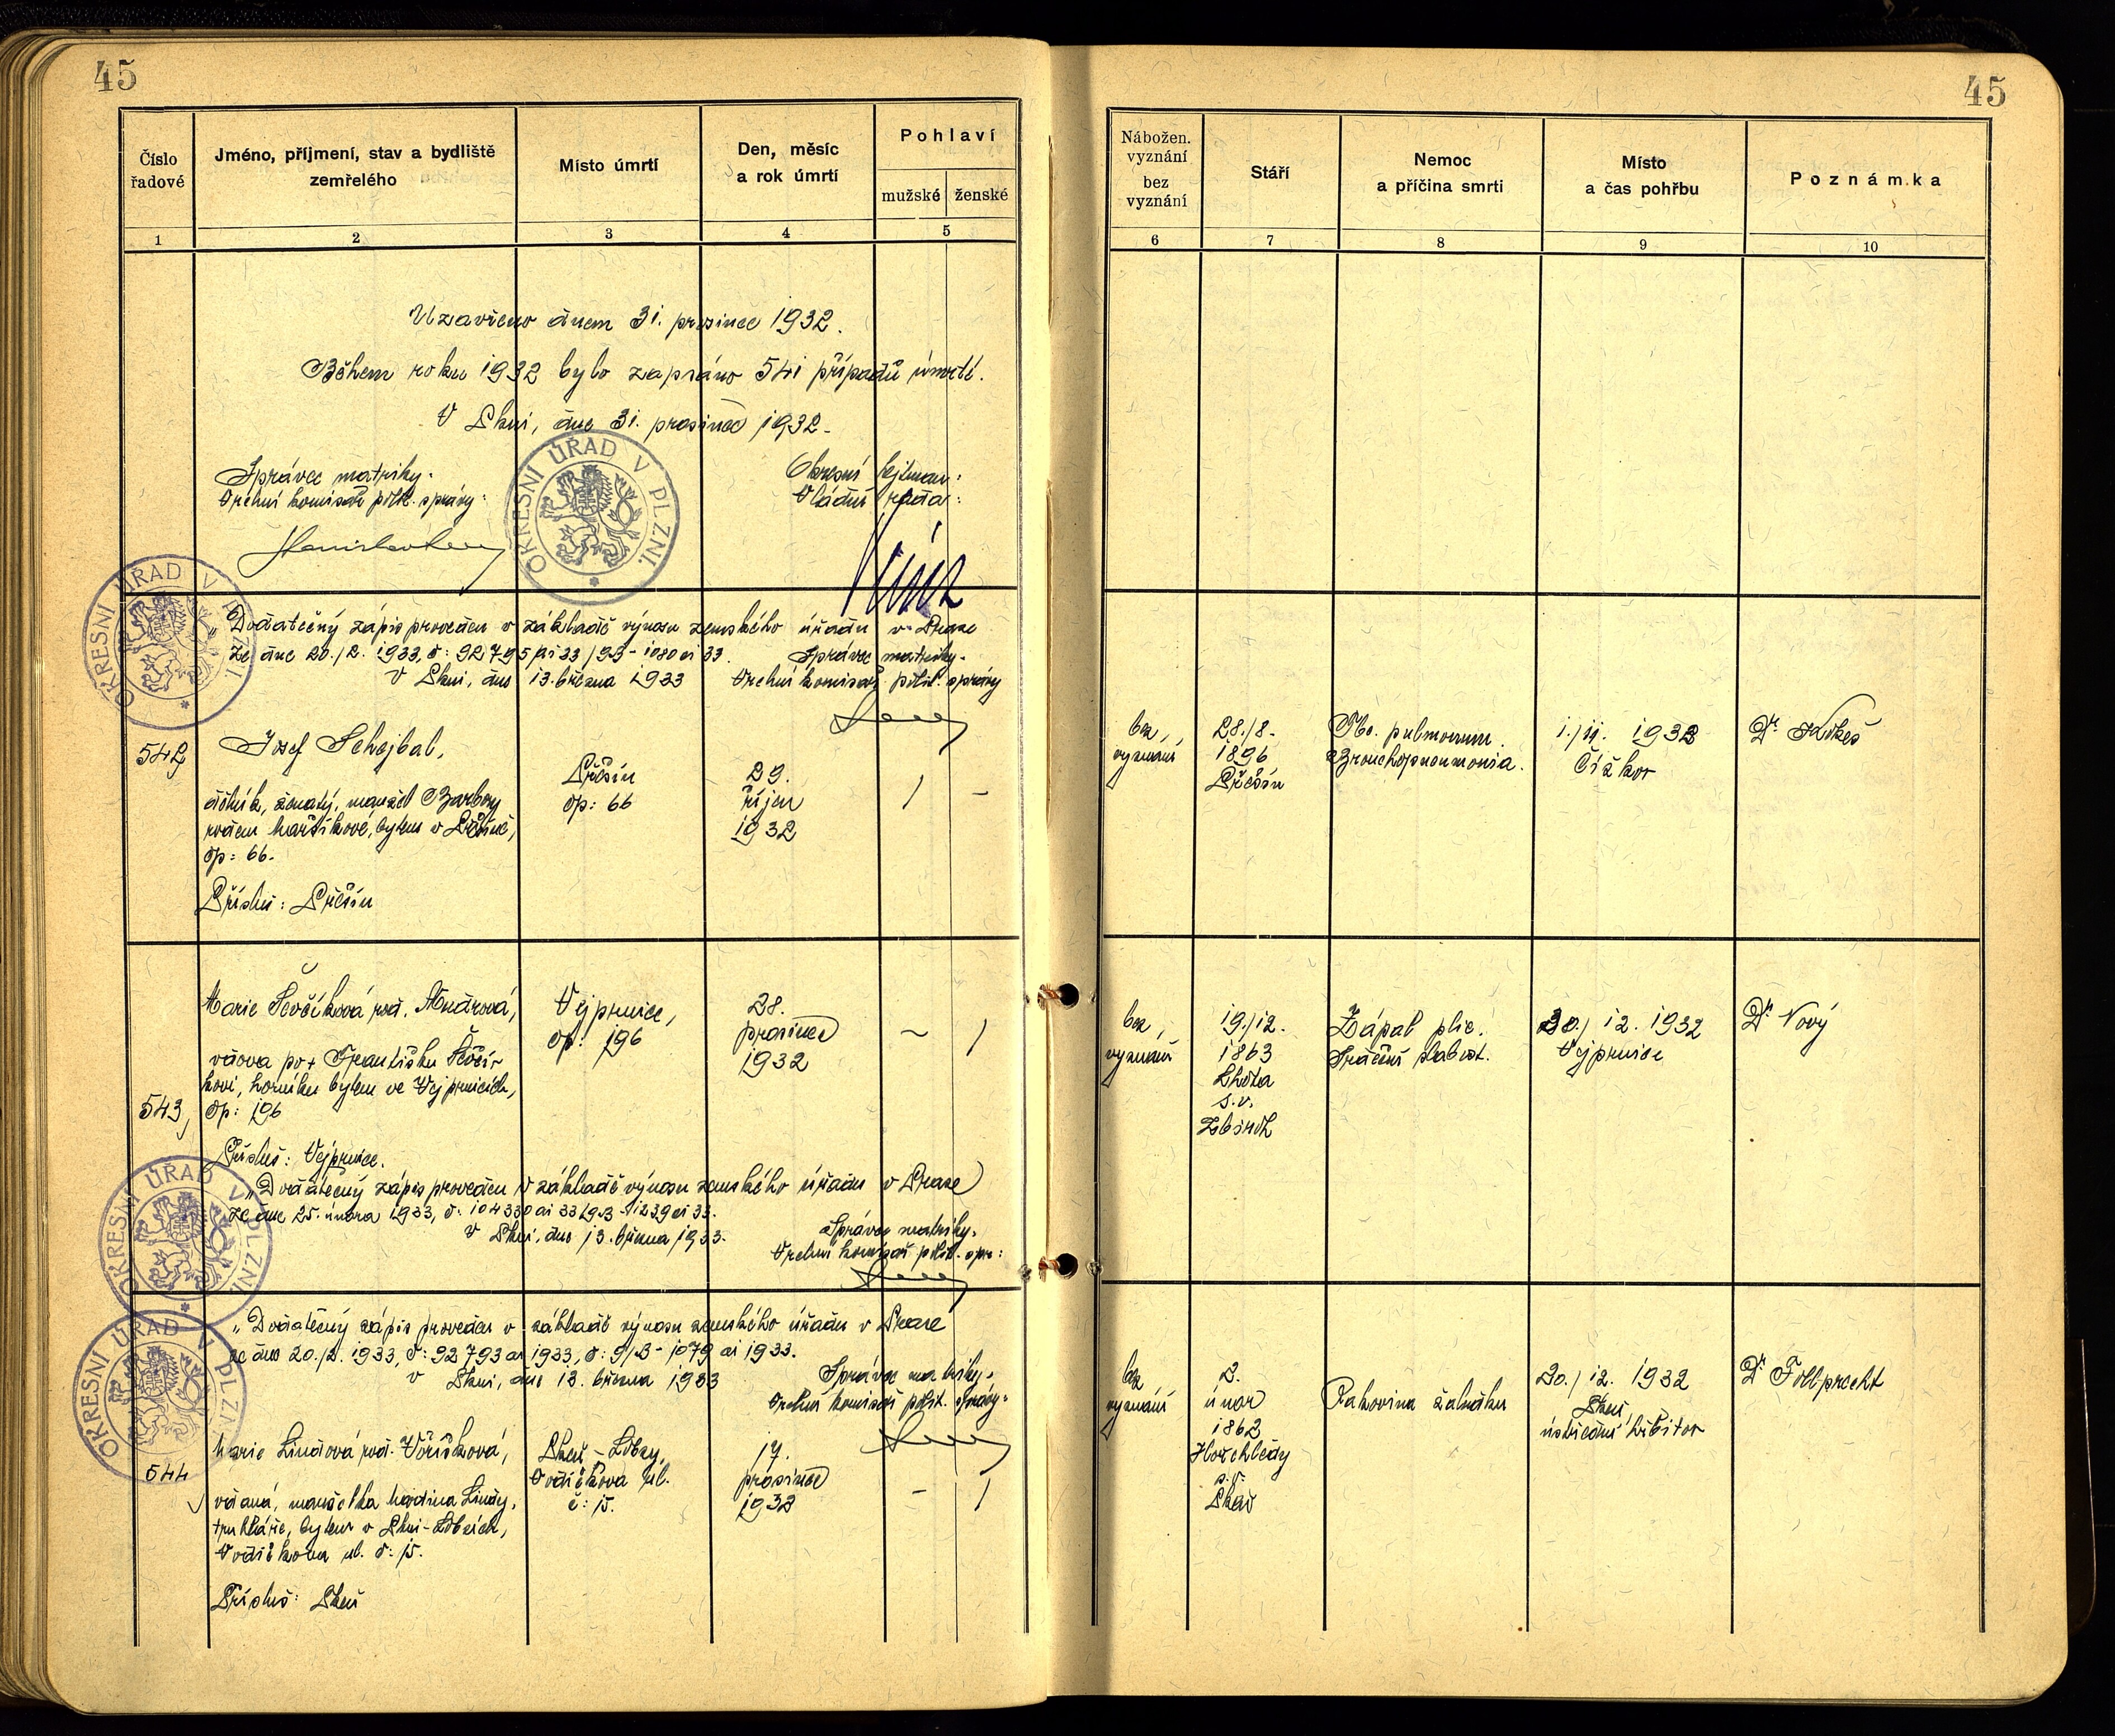 45
45
Číslo
řadové
Jméno, příjmení, stav a bydliště
zemřelého
Místo úmrtí
Den, měsíc
a rok úmrtí
Pohlaví
mužské ženské
1 2 3 4 5
Nábožen.
vyznání
bez
vyznání
Stáří
Nemoc
a příčina smrti
Místo
a čas pohřbu
Poznámka
6 7 8 9 10
Uzavřeno dnem 31. prosince 1932.
Během roku 1932 bylo zapsáno 541 případů úmrtí.
V Plzni, dne 31. prosince 1932.
Správce matriky:
Vrchní komisař polit. správy:
Okresní hejtman:
Vládní rada:
OKRESNÍ ÚŘAD V PLZNI.
OKRESNÍ ÚŘAD V PLZNI
„Dodatečný zápis proveden v základě výnosu zemského úřadu v Praze
ze dne 20./2. 1933, č: 92795 ai 33/9B-1080 ai 33.
Správce matriky.
V Plzni, dne 13. března 1933
Vrchní komisař polit. správy
542
Josef Schejbal,
dělník, ženatý, manžel Barbory
rozen Maříkové, bytem v Příšíně,
čp: 66.
Přísluš: Příšín
Příšín
čp: 66
29.
říjen
1932
/ -
bez
vyznání
28./8.
1896
Příšín
Tbc. pulmonum.
Bronchopneumonia.
1./11. 1932
Čížkov
Dr. Kokeš
543
Marie Ševčíková roz. Mudrová,
vdova po † Františku Ševčí-
kovi, horníku bytem ve Vejprnicích,
čp: 196
Přísluš: Vejprnice.
Vejprnice,
čp: 196
28.
prosince
1932
- /
bez
vyznání
19./12.
1863
Lhota
s.v.
Zbiroh
Zápal plic.
Srdeční slabost.
30./12. 1932
Vejprnice
Dr. Nový
OKRESNÍ ÚŘAD V PLZNI
„Dodatečný zápis proveden v základě výnosu zemského úřadu v Praze
ze dne 25. února 1933, č: 104330 ai 33/9B-1239 ai 33.
V Plzni, dne 13. března 1933.
Správce matriky.
Vrchní komisař polit. spr:
OKRESNÍ ÚŘAD V PLZNI
„Dodatečný zápis proveden v základě výnosu zemského úřadu v Praze
ze dne 20./2. 1933, č: 92793 ai 1933, č: 9/B-1079 ai 1933.
V Plzni, dne 13. března 1933
Správce matriky.
Vrchní komisař polit. správy.
544
Marie Lindová roz. Voříšková,
vdaná, manželka Lindy,
truhláře, bytem v Plzni-Lobzích,
Vodičkova ul. č: 15.
Přísluš: Plzeň
Plzeň-Lobzy,
Vodičkova ul.
č: 15.
17.
prosince
1932
- /
bez
vyznání
2.
únor
1862
Hořehledy
s.v.
Rakovina žaludku
20./12. 1932
Plzeň
ústřední hřbitov
Dr. Follprecht